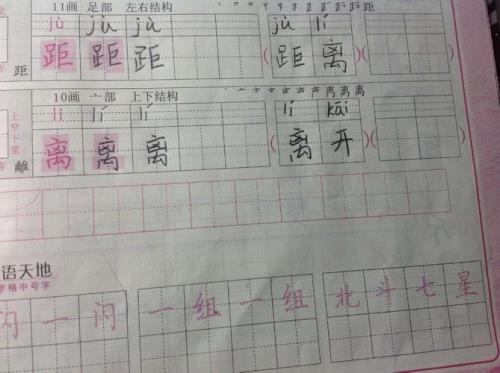 11画 足部 左右结构 距
jù jù jù jù lí
距 距 距 距 ( 距 离 ) ( )
10画 亠部 上下结构
lí lí lí lí kāi
離 离 离 离 ( 离 开 ) ( )
语天地
字格中号字
闪 一 闪 一 组 一 组 北 斗 七 星